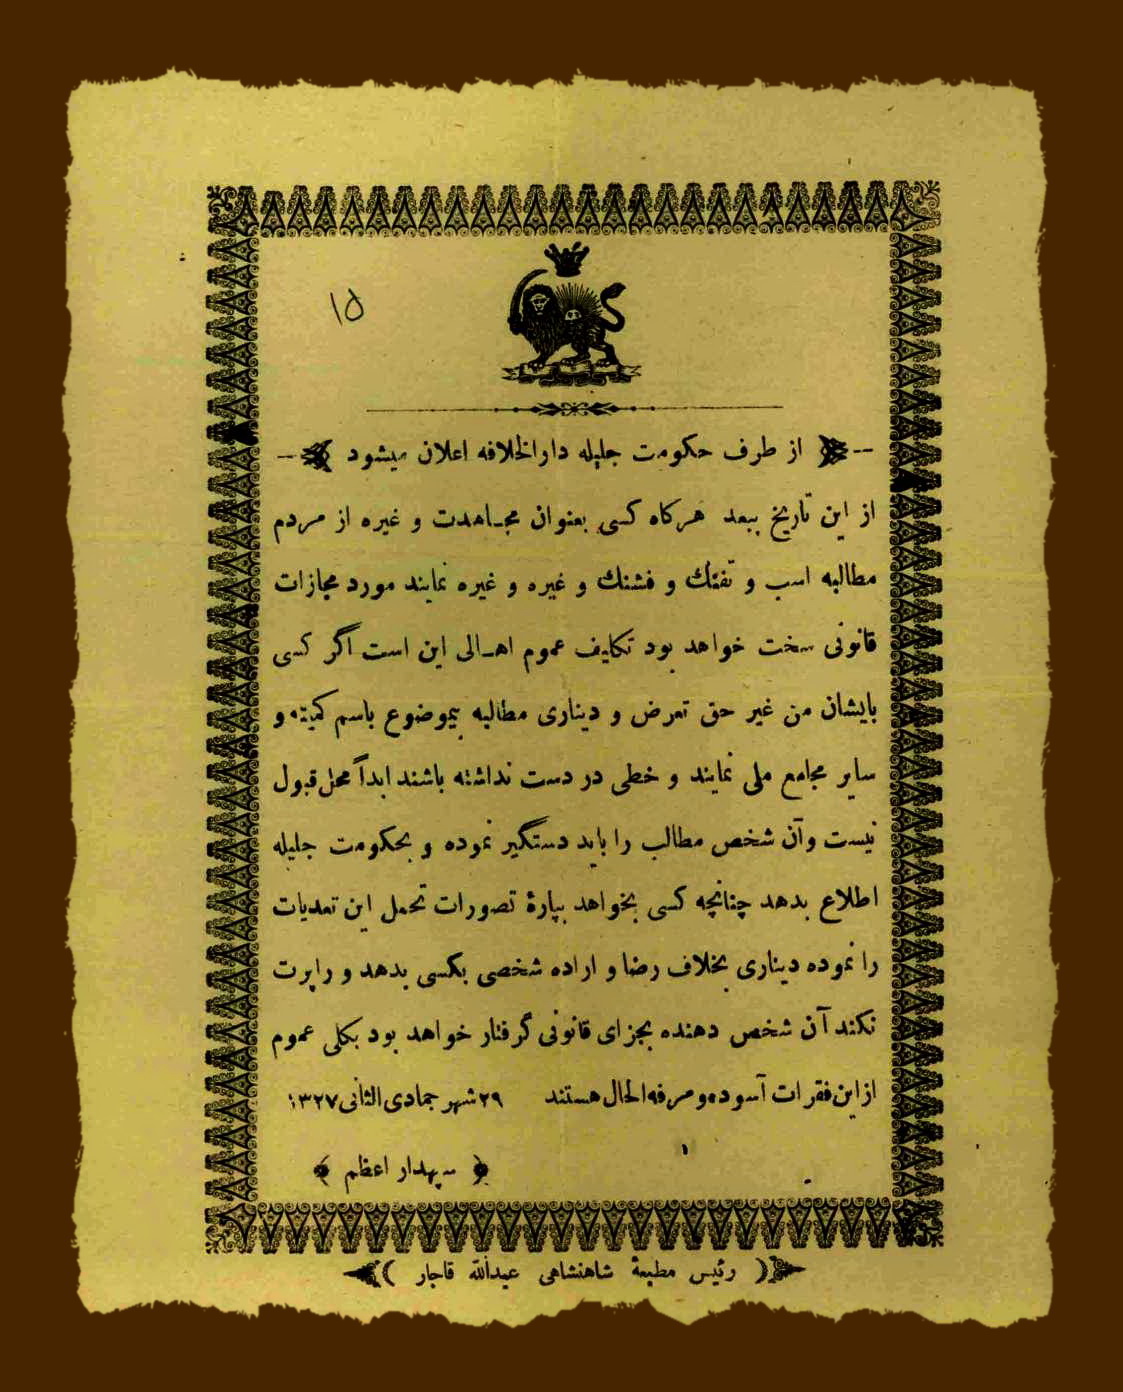 ۱۵
از طرف حکومت جلیله دارالخلافه اعلان میشود
از این تاریخ ببعد هرکاه کسی بعنوان مجاهدت و غیره از مردم
مطالبه اسب و تفنك و فشنك و غیره و غیره نمایند مورد مجازات
قانونی سخت خواهد بود تکایف عموم اهالی این است اگر کسی
بایشان من غیر حق تعرض و دیناری مطالبه بیموضوع باسم کمیته و
سایر مجامع ملی نمایند و خطی در دست نداشته باشند ابداً محل قبول
نیست وآن شخص مطالب را باید دستگیر نموده و بحکومت جلیله
اطلاع بدهد چنانچه کسی بخواهد بپارهٔ تصورات تحمل این تعدیات
را نموده دیناری بخلاف رضا و اراده شخصی بکسی بدهد و راپرت
نکند آن شخص دهنده بجزای قانونی گرفتار خواهد بود بکلی عموم
از این فقرات آسوده و مرفه الحال هستند ۲۹ شهر جمادی الثانی ۱۳۲۷
سپهدار اعظم
رئیس مطبعهٔ شاهنشاهی عبدالله قاجار